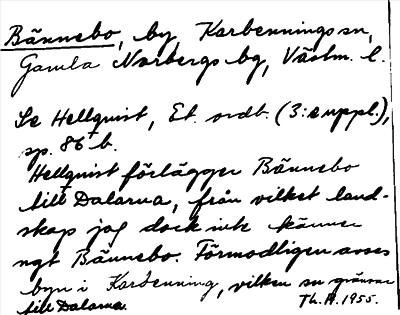 Bännebo, by, Karbennings sn,
Gamla Norbergs bg, Västm. l.
Se Hellquist, Et. ordb. (3:e uppl.),
sp. 86 b.
Hellquist förlägger Bännebo
till Dalarna, från vilket land-
skap jag dock inte känner
ngt Bännebo. Förmodligen avses
byn i Karbenning, vilken sn gränsar
till Dalarna. Th. A. 1955.